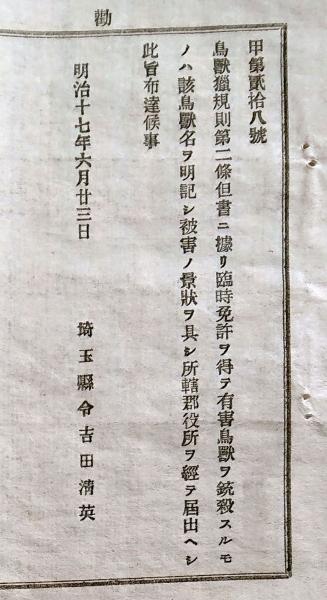 勸
甲第貳拾八號
鳥獸獵規則第二條但書ニ據リ臨時免許ヲ得テ有害鳥獸ヲ銃殺スルモ
ノハ該鳥獸名ヲ明記シ被害ノ景狀ヲ具シ所轄郡役所ヲ經テ屆出ヘシ
此旨布達候事
明治十七年六月廿三日
埼玉縣令吉田淸英